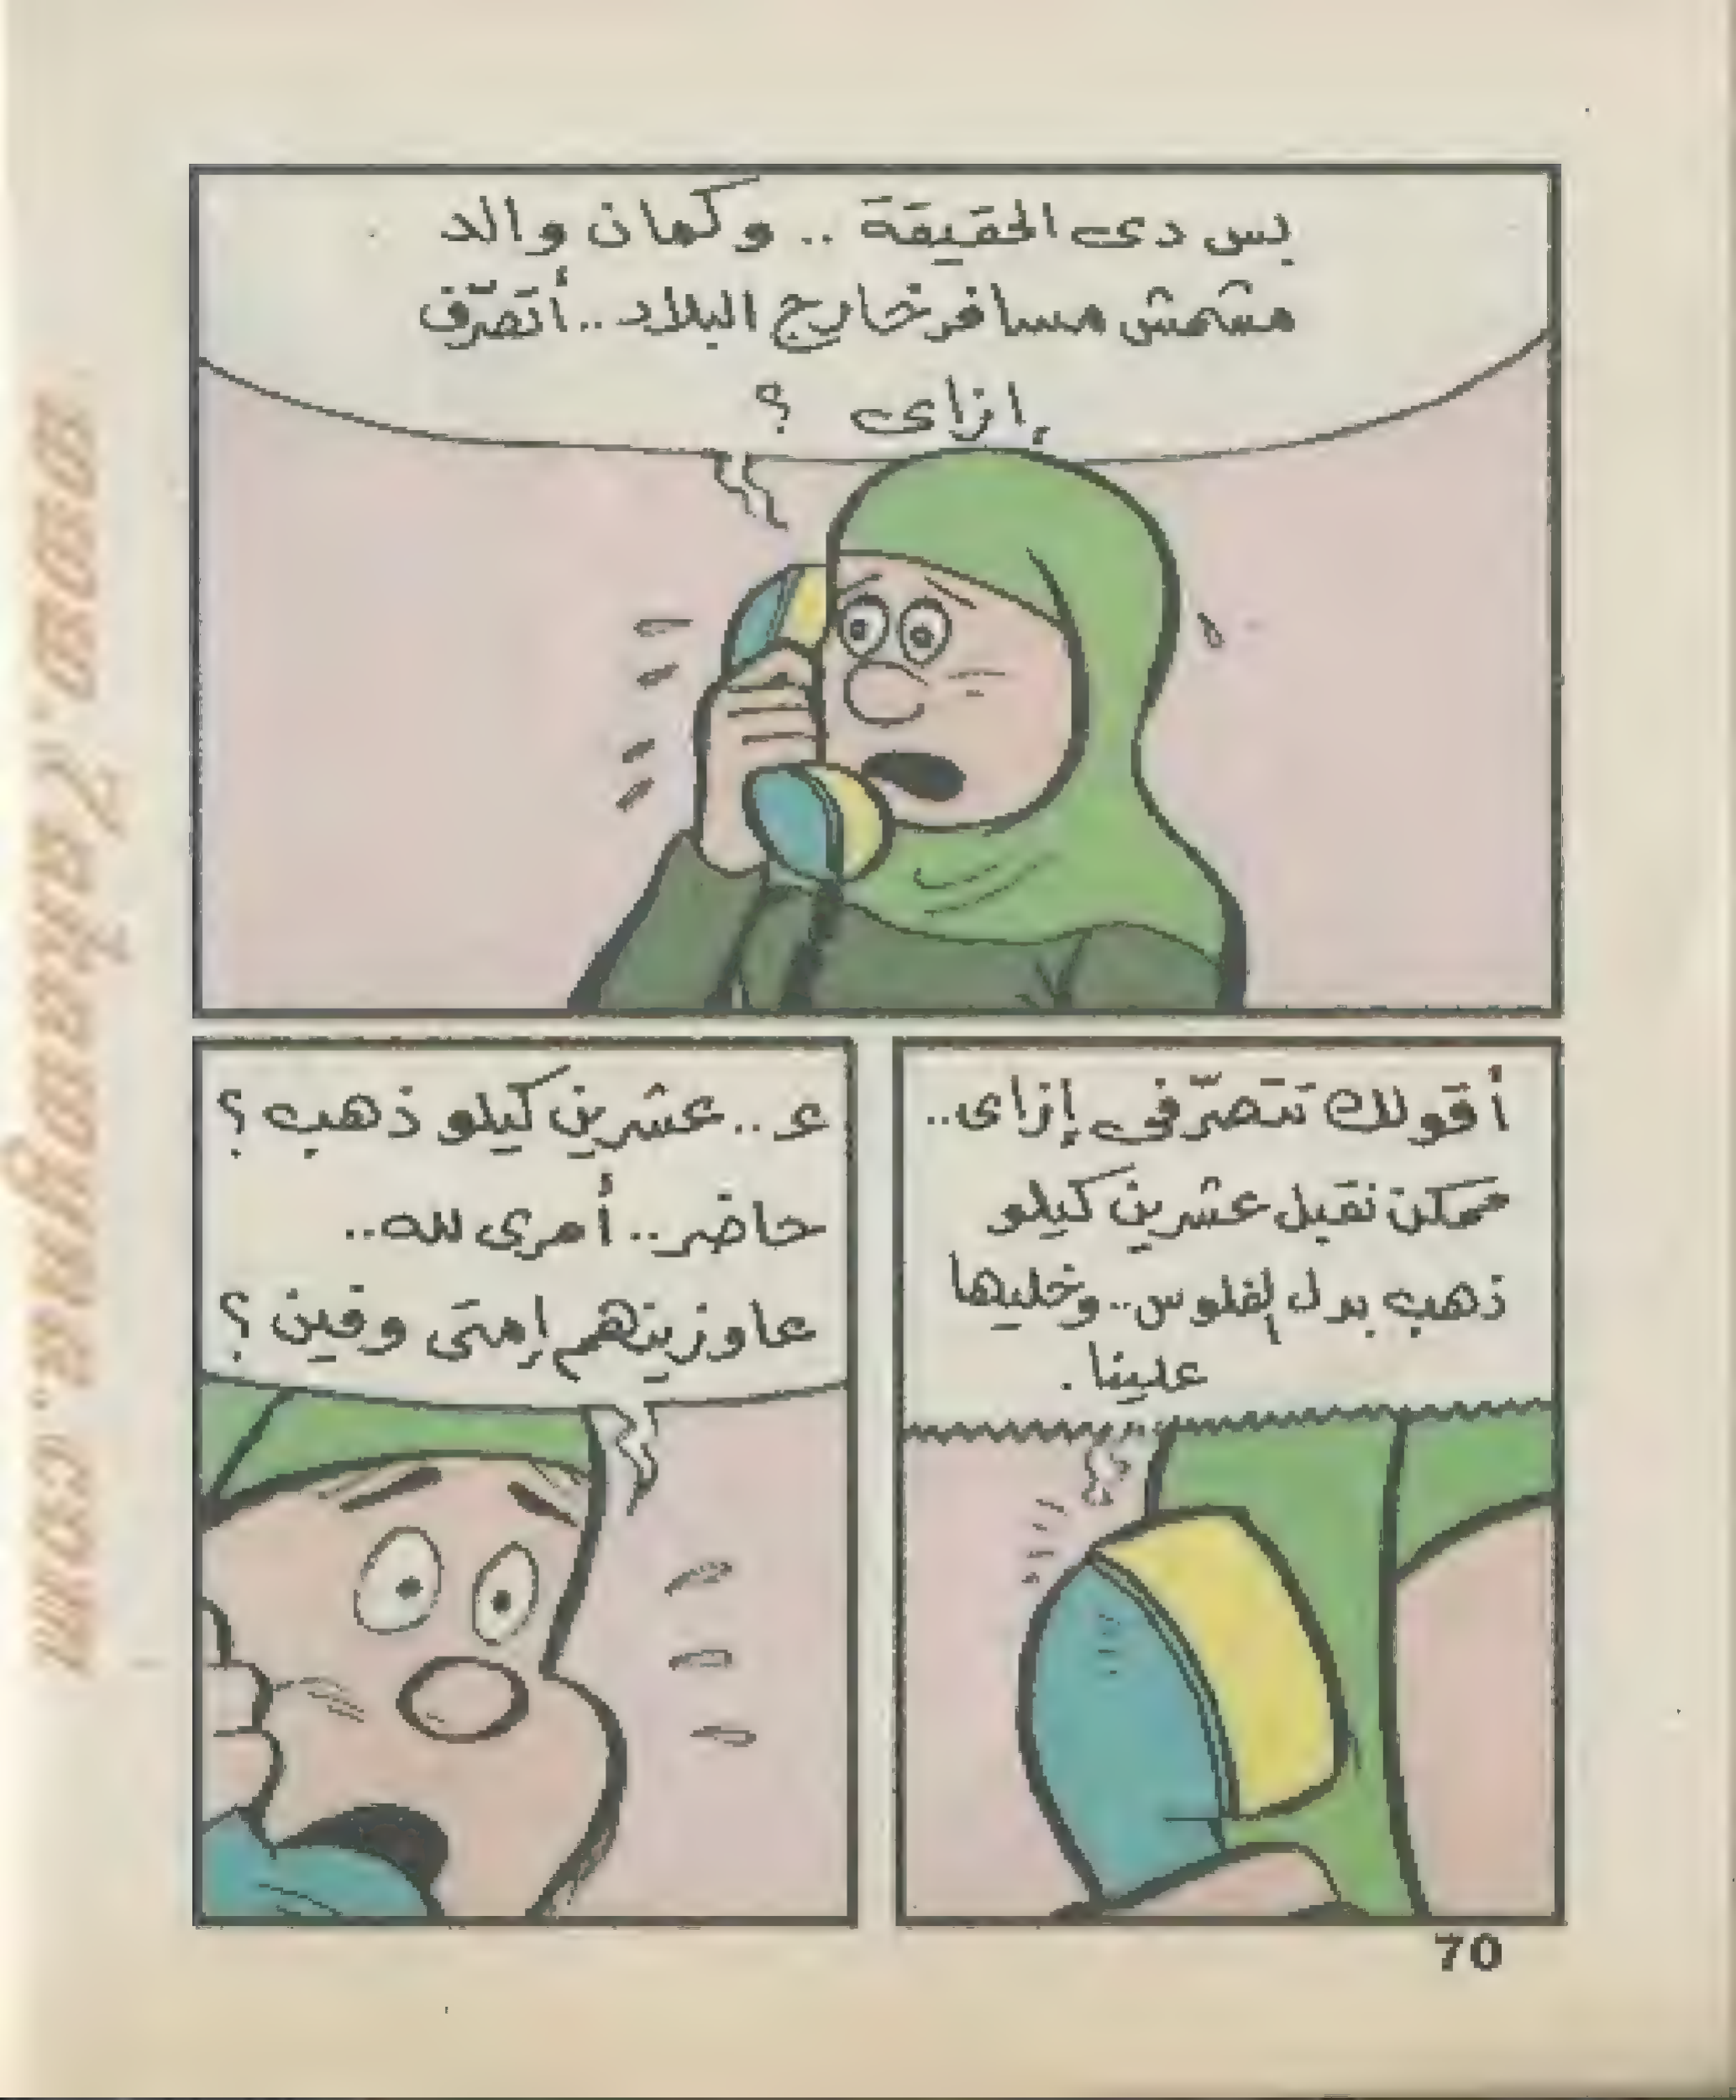 بس دى الحقيقة .. وكمان والد
مشمش مسافر خارج البلاد .. أتصرّف
إزاى ؟
أقولك تتصرّفى إزاى ..
ممكن نقبل عشرين كيلو
ذهب بدل الفلوس .. وخليها
علينا .
ع .. عشرين كيلو ذهب ؟
حاضر .. أمرى لله ..
عاوزينهم إمتى وفين ؟
70